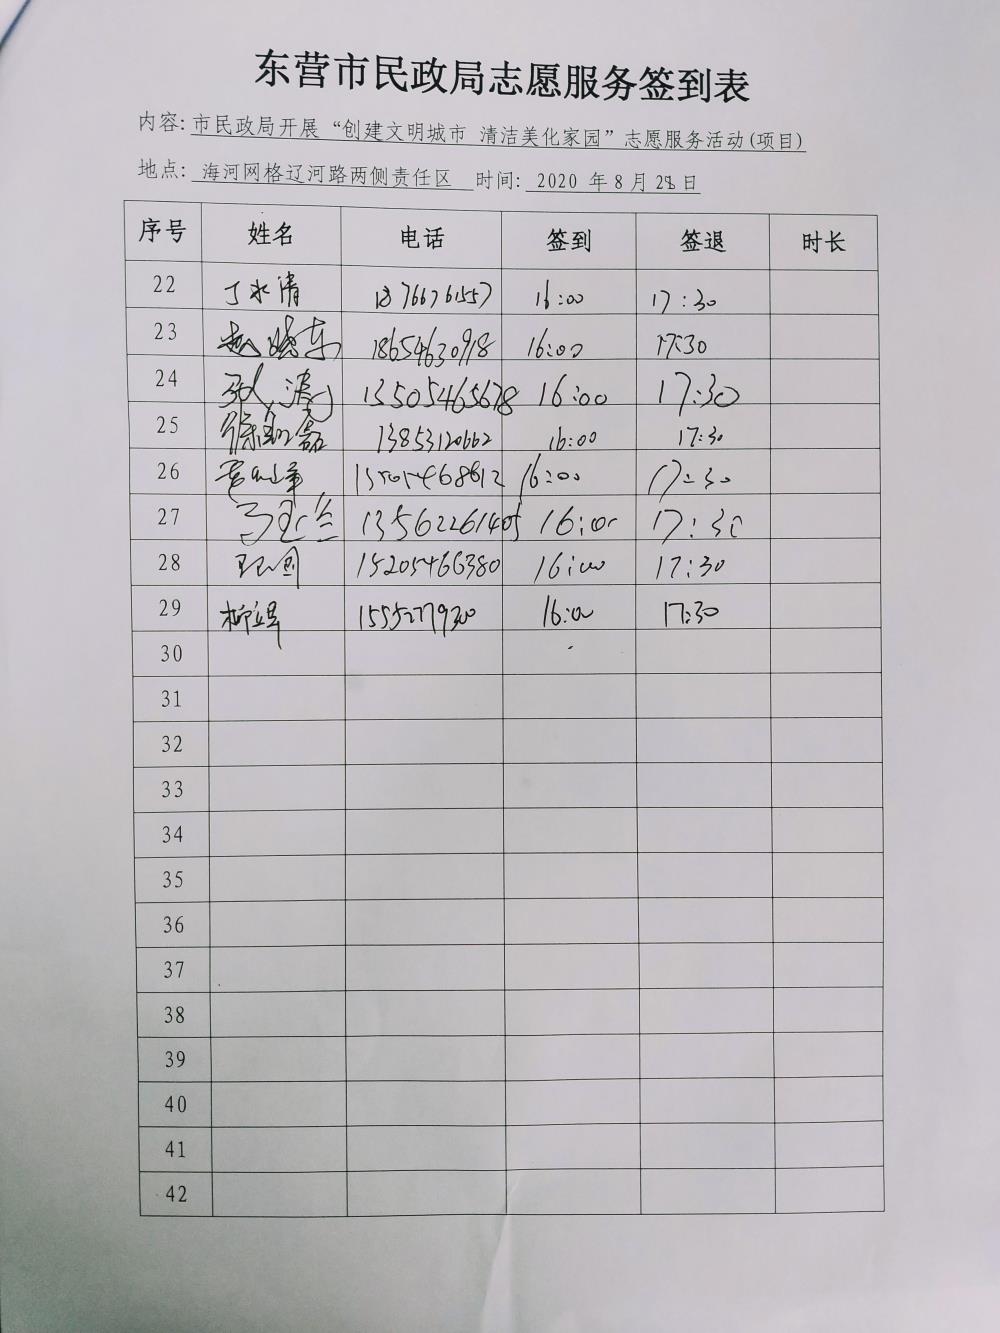 东营市民政局志愿服务签到表
内容: 市民政局开展“创建文明城市 清洁美化家园”志愿服务活动(项目)
地点: 海河网格辽河路两侧责任区 时间: 2020 年 8 月 28 日
序号 姓名 电话 签到 签退 时长
22 丁水清 18766761557 16:00 17:30
23 赵晓东 18654630918 16:00 17:30
24 张涛 13505465678 16:00 17:30
25 徐 磊 13853120662 16:00 17:30
26 16:00 17:30
27 13562261405 16:00 17:30
28 15205466380 16:00 17:30
29 15552779300 16:00 17:30
30
31
32
33
34
35
36
37
38
39
40
41
42